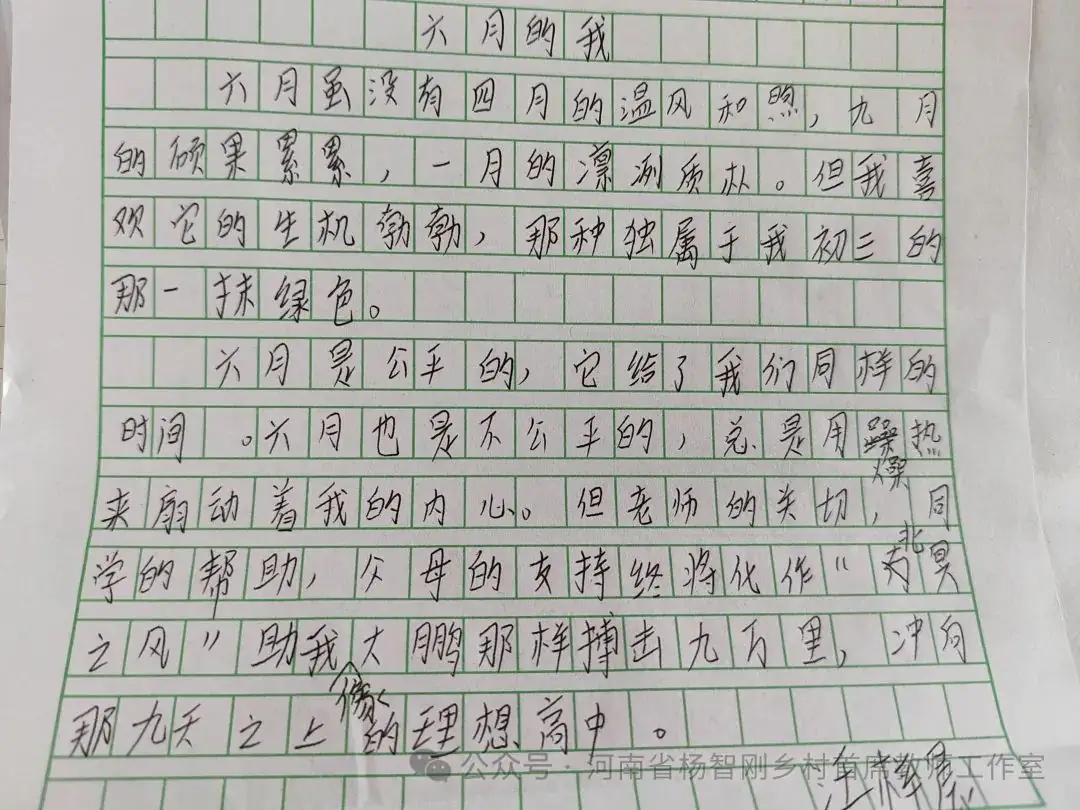 六月的我
六月虽没有四月的温风和煦，九月
的硕果累累，一月的凛冽质朴。但我喜
欢它的生机勃勃，那种独属于我初三的
那一抹绿色。
六月是公平的，它给了我们同样的
时间。六月也是不公平的，总是用燥热
来扇动着我的内心。但老师的关切，同
学的帮助，父母的支持终将化作"北冥
之风"助我像大鹏那样搏击九万里，冲向
那九天之上的理想高中。
公众号·河南省杨智刚乡村首席教师工作室